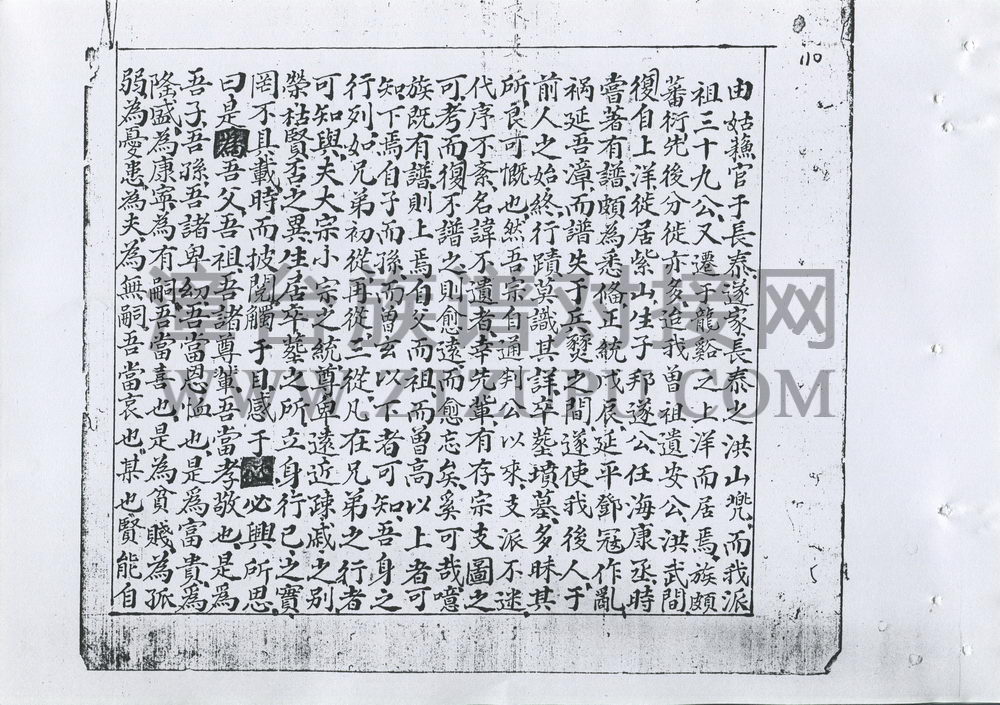 110
由姑蘓官于長泰遂家長泰之洪山兠而我派
祖三十九公又遷于龍谿之上洋而居焉族頗
蕃衍先後分徙亦多迨我曾祖遺安公洪武間
復自上洋徙居紫山生子邦遂公任海康丞時
嘗著有譜頗為悉俻正統戊辰延平鄧冦作亂
禍延吾漳而譜失于兵燹之間遂使我後人于
前人之始終行蹟莫識其詳卒墓墳墓多昧其
所良可慨也然吾宗自通判公以來支派不迷
代序不紊名諱不遺者幸先輩有存宗支圖之
可考而復不譜之則愈遠而愈忘矣奚可哉噫
族既有譜則上焉自父而祖而曾高以上者可
知下焉自子而孫而曾玄以下者可知吾身之
行列如兄弟初從再從三從凡在兄弟之行者
可知與夫大宗小宗之統尊卑遠近疎戚之別
榮枯賢否之異生居卒墓之所立身行已之實
罔不具載時而披閱觸于目感于必興所思
曰是為吾父吾祖吾諸尊輩吾當孝敬也是為
吾子吾孫吾諸卑幼吾當恩恤也是為富貴為
隆盛為康寧為有嗣吾當喜也是為貧賤為孤
弱為憂患為夫為無嗣吾當哀也某也賢能自
漳台族谱对接网
WWW.ZTZUPU.COM